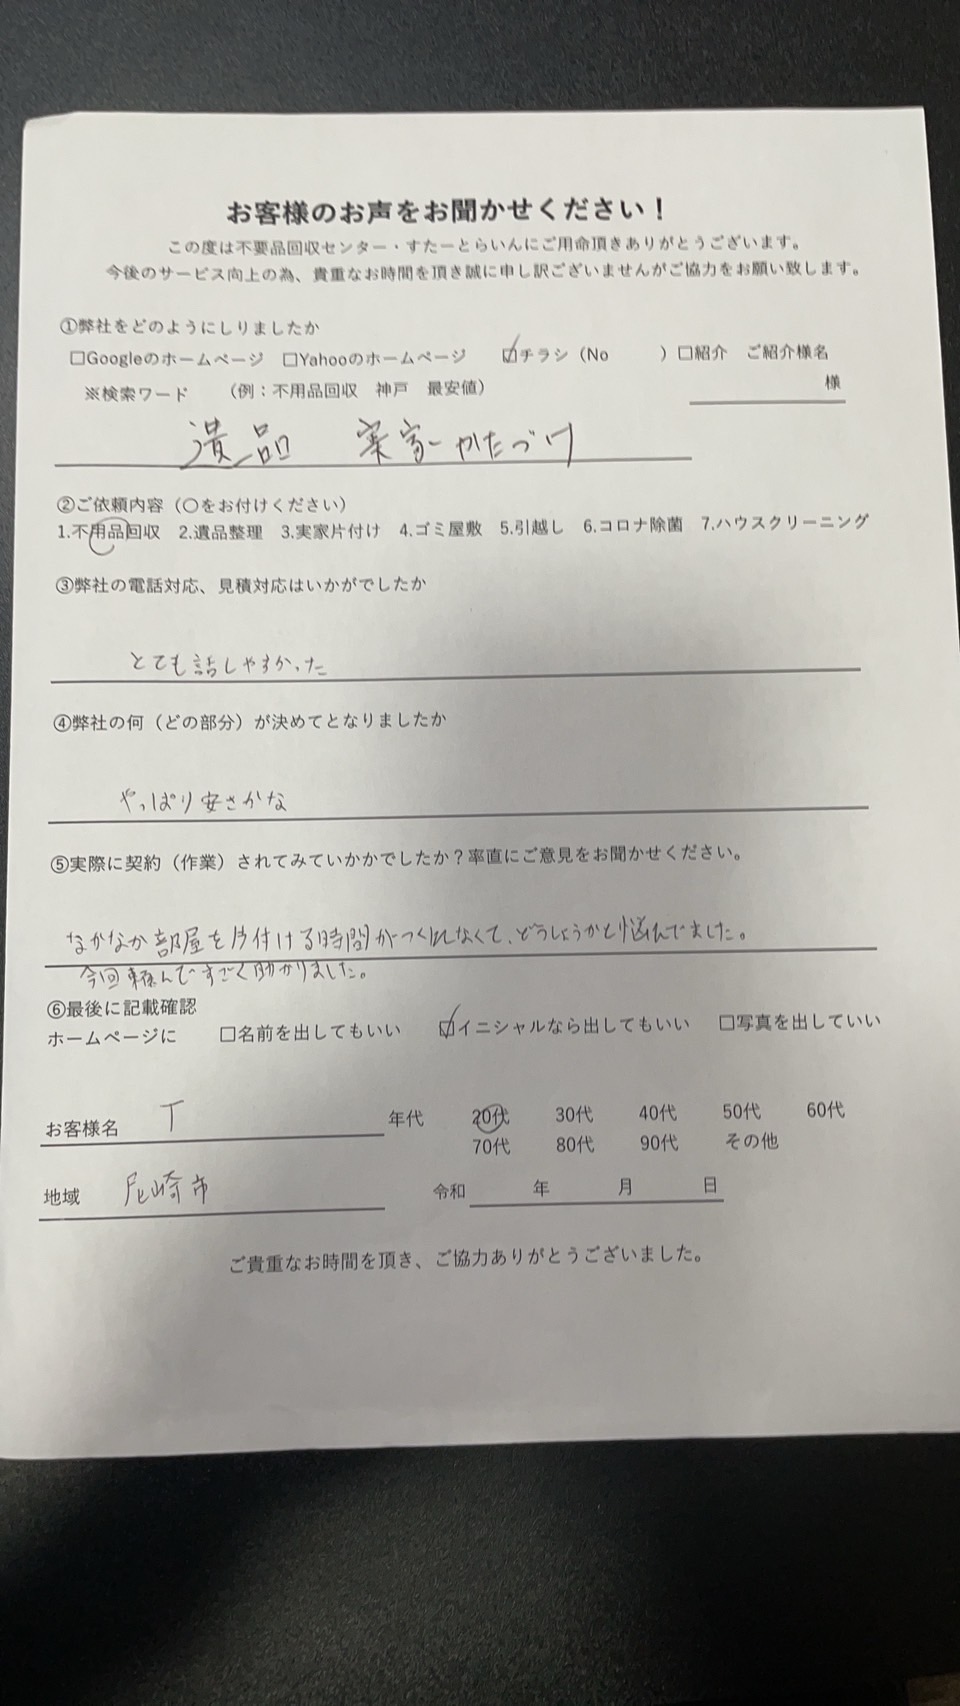 お客様のお声をお聞かせください！
この度は不要品回収センター・すたーとらいんにご用命頂きありがとうございます。
今後のサービス向上の為、貴重なお時間を頂き誠に申し訳ございませんがご協力をお願い致します。
①弊社をどのようにしりましたか
□Googleのホームページ □Yahooのホームページ ☑チラシ（No ）□紹介 ご紹介様名
※検索ワード （例：不用品回収 神戸 最安値） 様
遺品 実家かたづけ
②ご依頼内容（〇をお付けください）
1.不用品回収 2.遺品整理 3.実家片付け 4.ゴミ屋敷 5.引越し 6.コロナ除菌 7.ハウスクリーニング
③弊社の電話対応、見積対応はいかがでしたか
とても話しやすかった
④弊社の何（どの部分）が決めてとなりましたか
やっぱり安さかな
⑤実際に契約（作業）されてみていかかでしたか？率直にご意見をお聞かせください。
なかなか部屋を片付ける時間がつくれなくて、どうしようかと悩んでました。
今回頼んですごく助かりました。
⑥最後に記載確認
ホームページに □名前を出してもいい ☑イニシャルなら出してもいい □写真を出していい
お客様名 T 年代 20代 30代 40代 50代 60代
70代 80代 90代 その他
地域 尼崎市 令和 年 月 日
ご貴重なお時間を頂き、ご協力ありがとうございました。